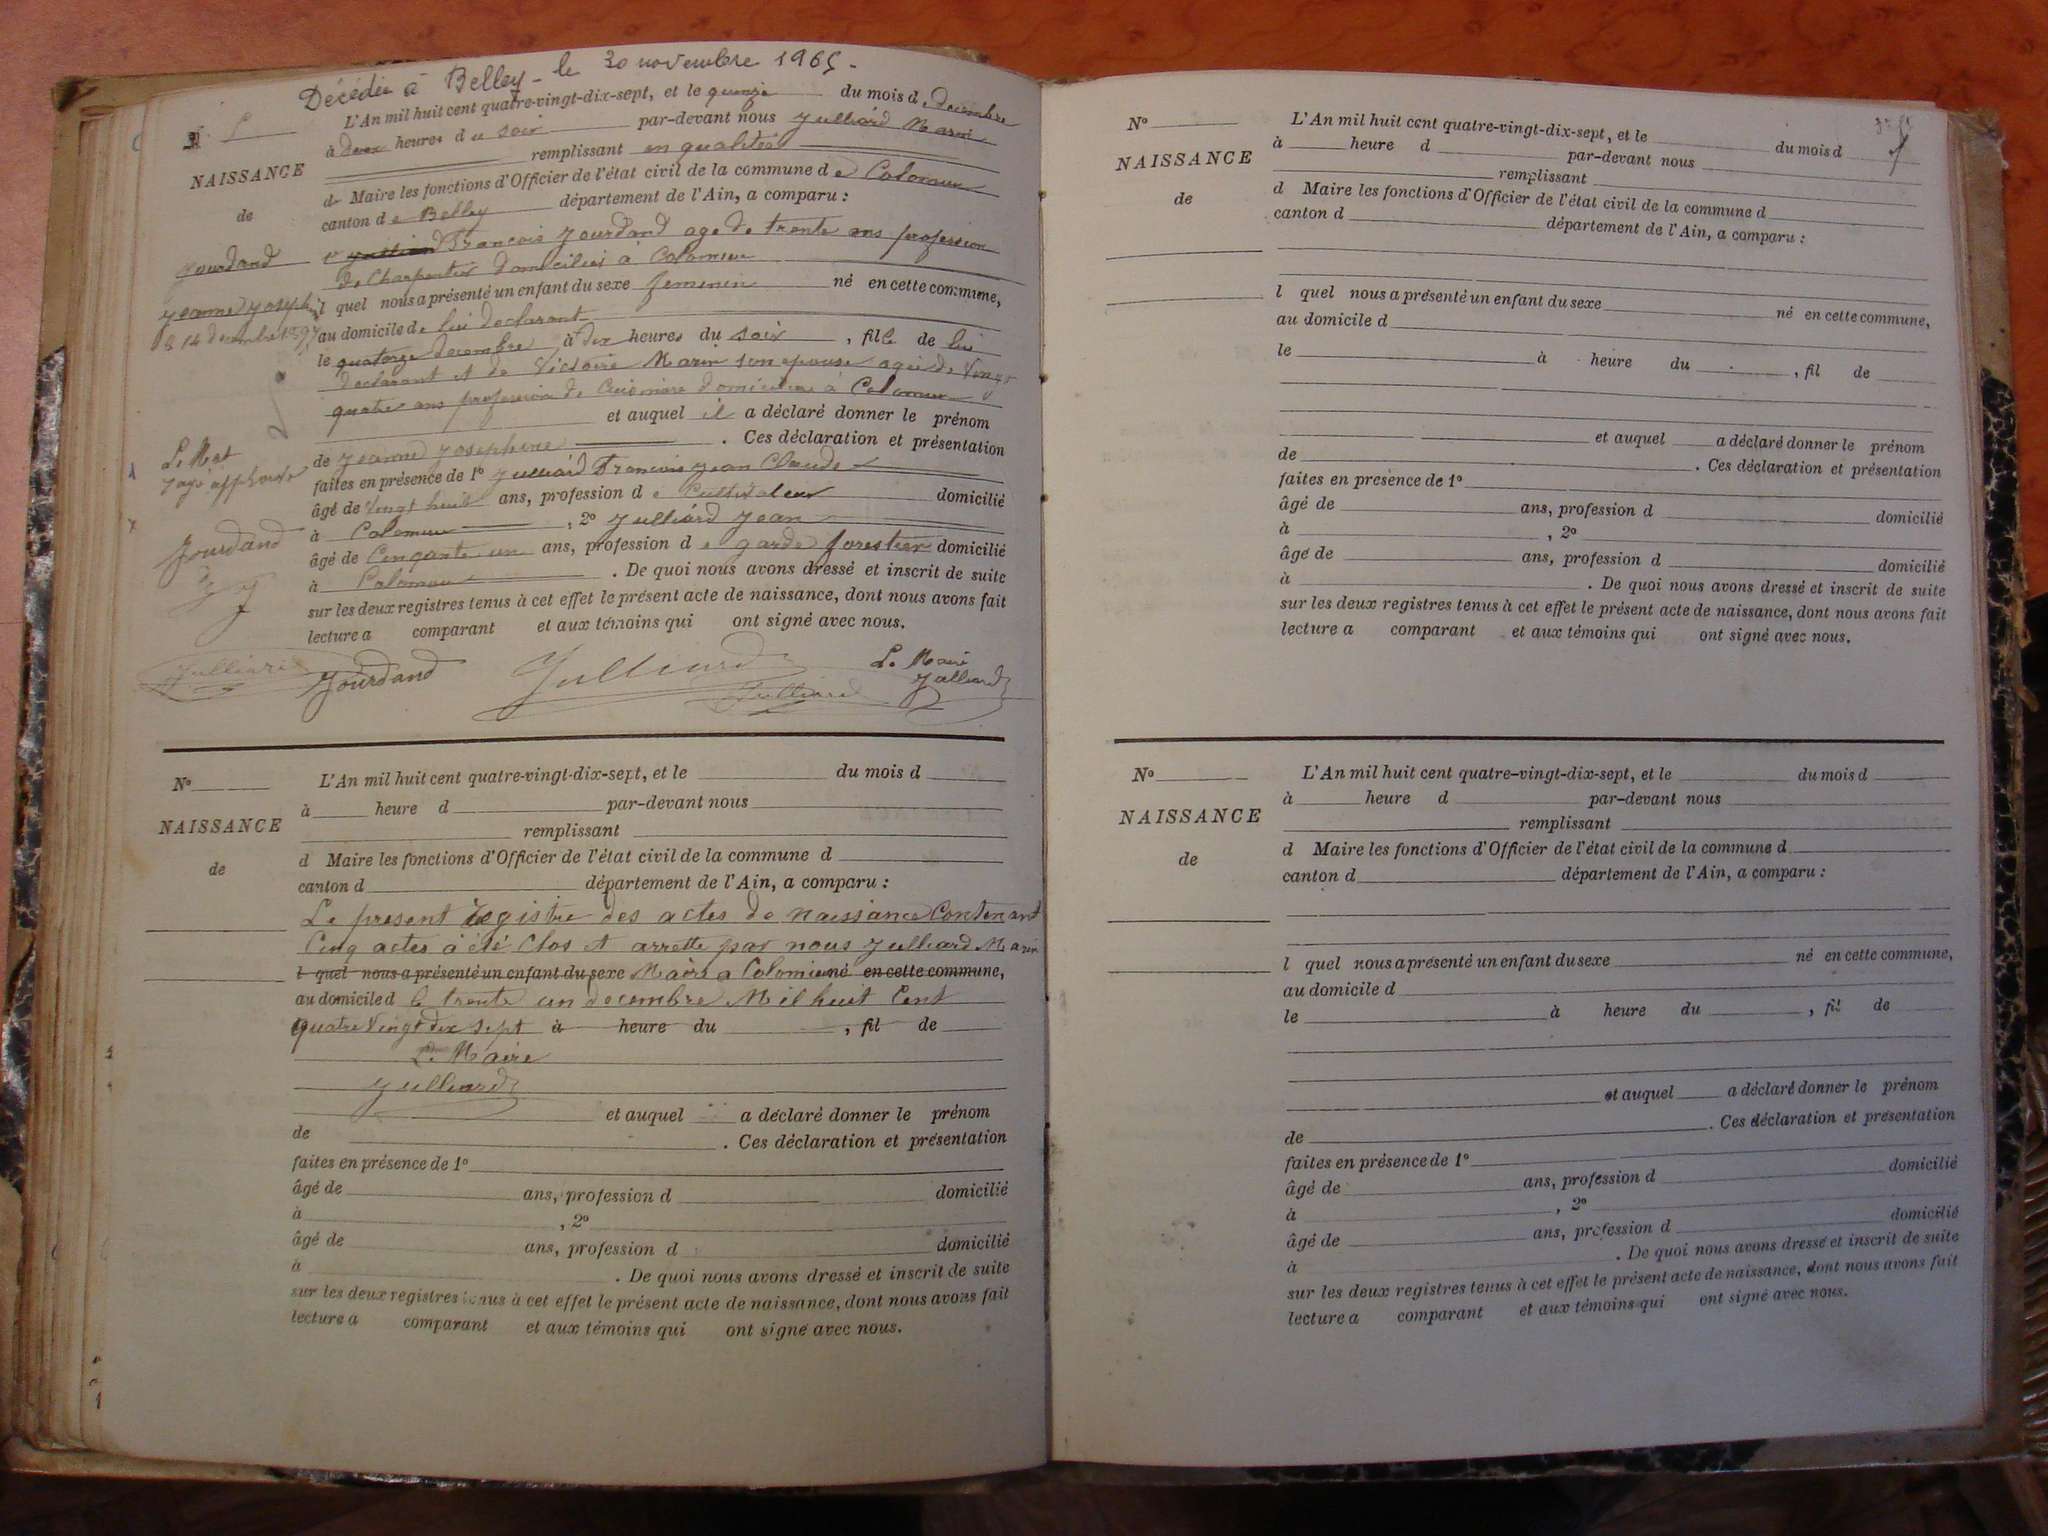 Décédée à Belley - le 30 novembre 1965 -
N° 5
L'An mil huit cent quatre-vingt-dix-sept, et le quinze du mois d e Decembre
à deux heures d u soir par-devant nous Julliard Marin
remplissant en qualité
NAISSANCE
de Maire les fonctions d'Officier de l'état civil de la commune d e Colomieu
de
canton d e Belley département de l'Ain, a comparu :
Jourdand
François Jourdand age de trente ans profession
de Charpentier domicilié à Colomieu
Jeanne Josephine
l quel nous a présenté un enfant du sexe feminin né en cette commune,
le 14 decembre 1897
au domicile de lui declarant
le quatorze decembre à dix heures du soir, fille de lui
declarant et de Victoire Marin son epouse agée de Vingt
quatre ans profession de Cuisinière domiciliée à Colomieu
et auquel il a déclaré donner le prénom
de Jeanne Josephine. Ces déclaration et présentation
Le Mot
rayé
faites en présence de 1° Julliard François Jean Claude
âgé de vingt huit ans, profession d e Cultivateur domicilié
à Colomieu, 2° Julliard Jean
Jourdand
âgé de Cinquante un ans, profession d e garde forestier domicilié
à Colomieu. De quoi nous avons dressé et inscrit de suite
sur les deux registres tenus à cet effet le présent acte de naissance, dont nous avons fait
lecture a comparant et aux témoins qui ont signé avec nous.
Julliard Jourdand Julliard Julliard Le Maire
Julliard
N° L'An mil huit cent quatre-vingt-dix-sept, et le du mois d
à heure d par-devant nous
NAISSANCE
remplissant
de
d Maire les fonctions d'Officier de l'état civil de la commune d
canton d département de l'Ain, a comparu :
Le present registre des actes de naissance Contenant
Cinq actes à été Clos et arrette par nous Julliard Marin
l quel nous a présenté un enfant du sexe Maire a Colomieu né en cette commune,
au domicile d le trente un decembre Mil huit Cent
quatre Vingt dix sept à heure du , fil de
Le Maire
Julliard
et auquel a déclaré donner le prénom
de . Ces déclaration et présentation
faites en présence de 1°
âgé de ans, profession d domicilié
à , 2°
âgé de ans, profession d domicilié
à . De quoi nous avons dressé et inscrit de suite
sur les deux registres tenus à cet effet le présent acte de naissance, dont nous avons fait
lecture a comparant et aux témoins qui ont signé avec nous.
N° L'An mil huit cent quatre-vingt-dix-sept, et le du mois d
à heure d par-devant nous
NAISSANCE
remplissant
de
d Maire les fonctions d'Officier de l'état civil de la commune d
canton d département de l'Ain, a comparu :
l quel nous a présenté un enfant du sexe né en cette commune,
au domicile d
le à heure du , fil de
et auquel a déclaré donner le prénom
de . Ces déclaration et présentation
faites en présence de 1°
âgé de ans, profession d domicilié
à , 2°
âgé de ans, profession d domicilié
à . De quoi nous avons dressé et inscrit de suite
sur les deux registres tenus à cet effet le présent acte de naissance, dont nous avons fait
lecture a comparant et aux témoins qui ont signé avec nous.
N° L'An mil huit cent quatre-vingt-dix-sept, et le du mois d
à heure d par-devant nous
NAISSANCE
remplissant
de
d Maire les fonctions d'Officier de l'état civil de la commune d
canton d département de l'Ain, a comparu :
l quel nous a présenté un enfant du sexe né en cette commune,
au domicile d
le à heure du , fil de
et auquel a déclaré donner le prénom
de . Ces déclaration et présentation
faites en présence de 1°
âgé de ans, profession d domicilié
à , 2°
âgé de ans, profession d domicilié
à . De quoi nous avons dressé et inscrit de suite
sur les deux registres tenus à cet effet le présent acte de naissance, dont nous avons fait
lecture a comparant et aux témoins qui ont signé avec nous.